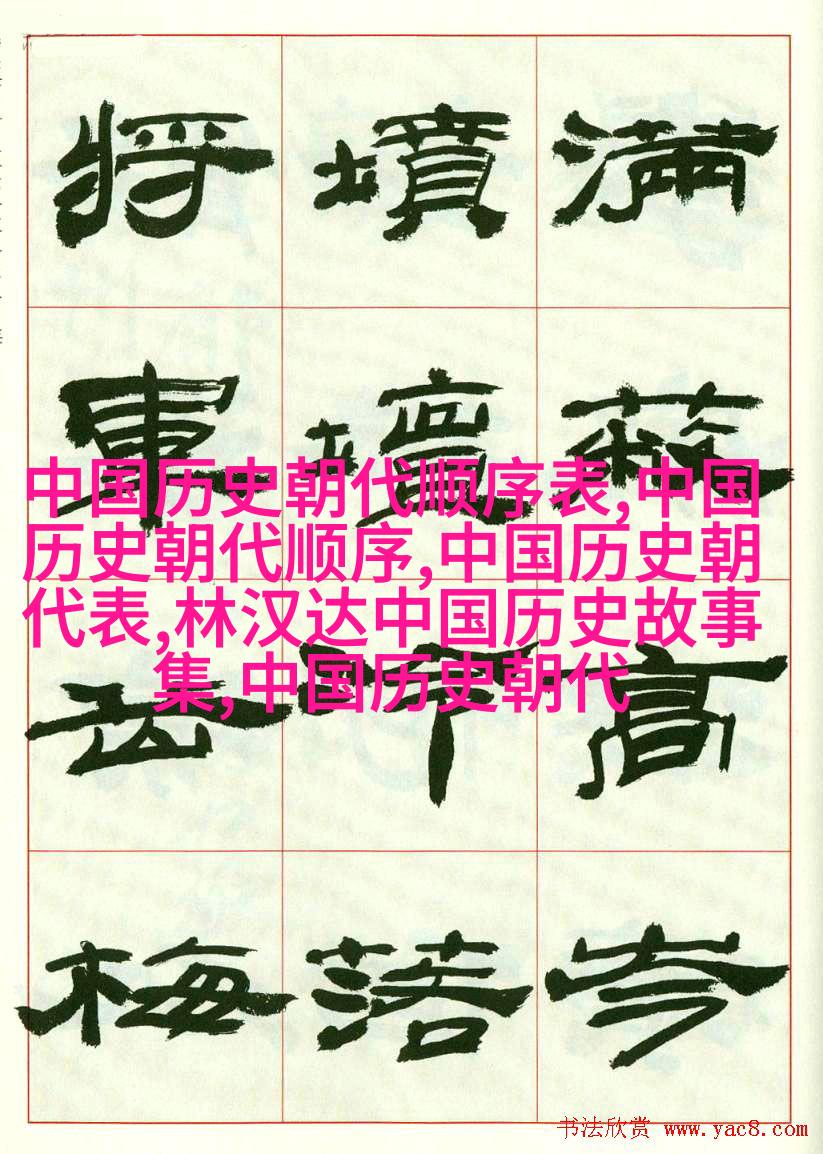 滿蔽高岑
墳壇落
將軍岳梅
中国历史朝代顺序表,中国
历史朝代顺序,中国历史朝
代表,林汉达中国历史故事
集,中国历史朝代
书法欣赏 www.yac8.com